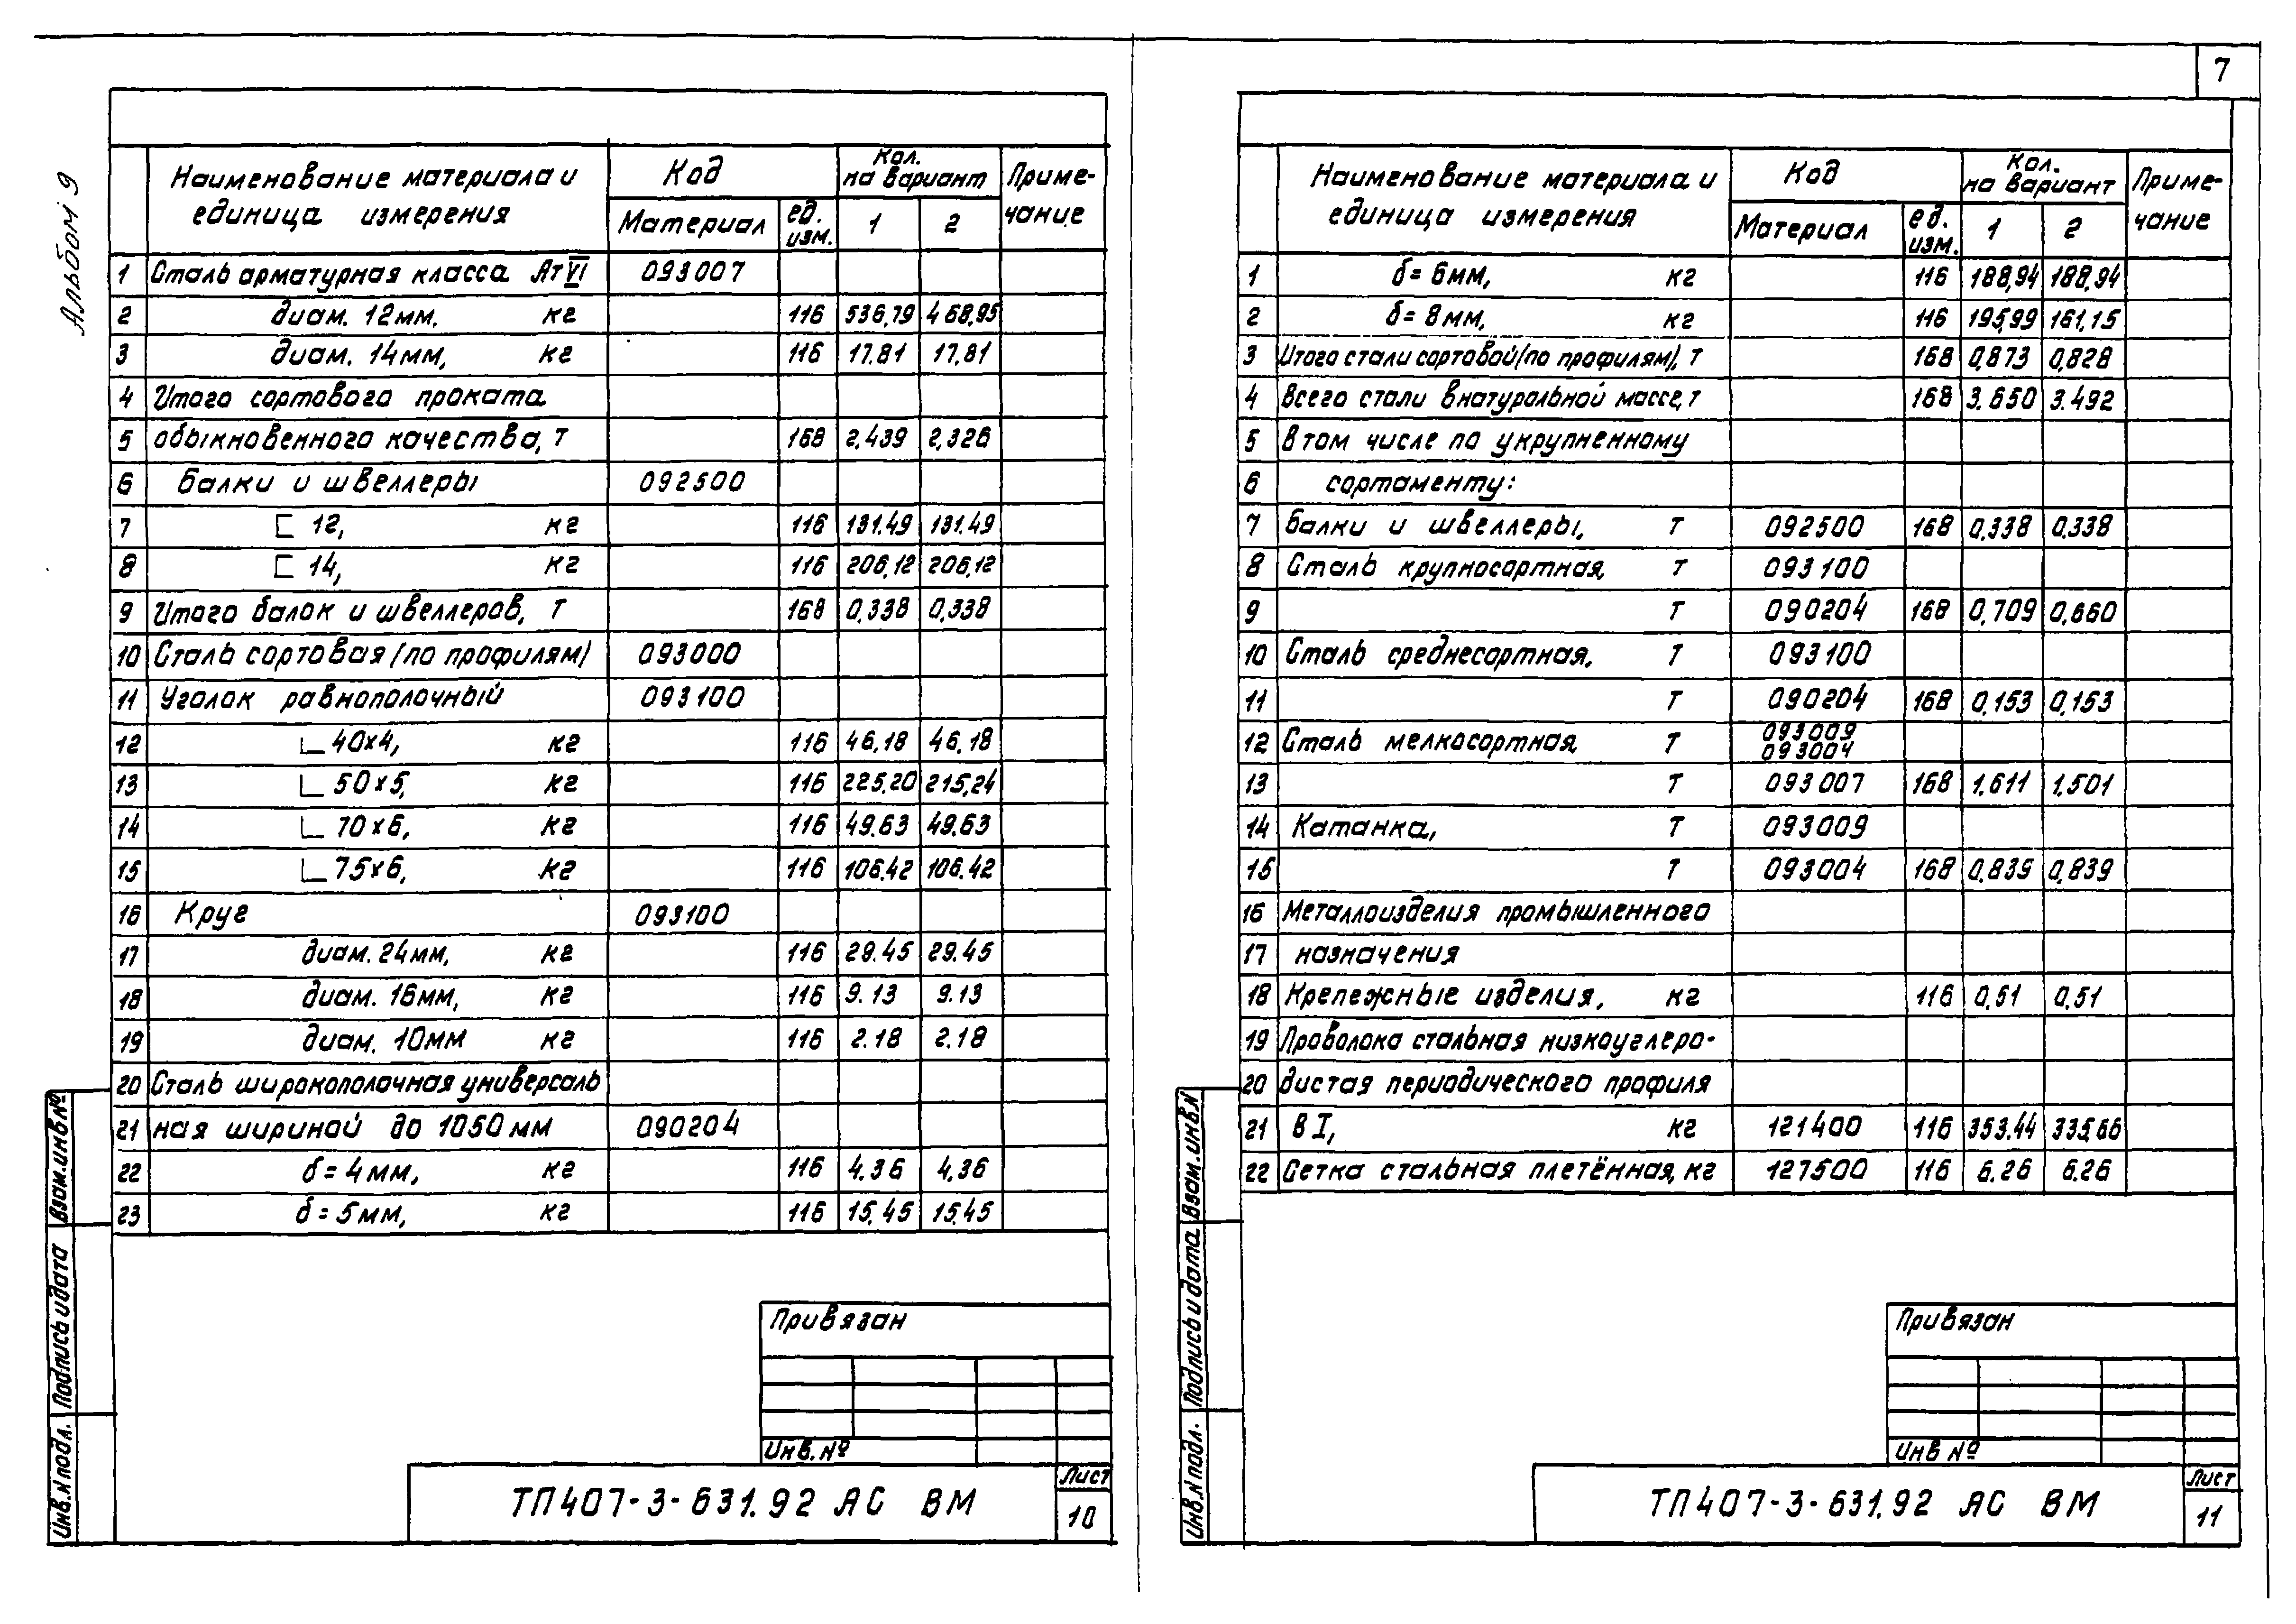 7
Альбом 9
Наименование материала и единица измерения | Код | Кол. на вариант | Приме-чание
Материал | ед. изм. | 1 | 2
1 Сталь арматурная класса Ат VI 093007
2 диам. 12мм, кг 116 536,79 468,95
3 диам. 14мм, кг 116 17.81 17,81
4 Итого сортового проката
5 обыкновенного качества, т 168 2,439 2,326
6 Балки и швеллеры 092500
7 [ 12, кг 116 131.49 131.49
8 [ 14, кг 116 206,12 206,12
9 Итого балок и швеллеров, т 168 0,338 0,338
10 Сталь сортовая (по профилям) 093000
11 Уголок равнополочный 093100
12 ∟ 40х4, кг 116 46,18 46,18
13 ∟ 50х5, кг 116 225.20 215,24
14 ∟ 70х6, кг 116 49.63 49.63
15 ∟ 75х6, кг 116 106.42 106.42
16 Круг 093100
17 диам. 24мм, кг 116 29.45 29.45
18 диам. 16мм, кг 116 9.13 9.13
19 диам. 10мм кг 116 2.18 2.18
20 Сталь широкополочная универсаль
21 ная шириной до 1050 мм 090204
22 δ = 4мм, кг 116 4,36 4,36
23 δ = 5мм, кг 116 15,45 15,45
Привязан
Инв. №
ТП 407-3-631.92 АС ВМ
Лист
10
Взам.инв№
Подпись и дата
Инв.N подл.
Наименование материала и единица измерения | Код | Кол. на вариант | Приме-чание
Материал | ед. изм. | 1 | 2
1 δ = 6мм, кг 116 188,94 188,94
2 δ = 8мм, кг 116 195,99 161,15
3 Итого стали сортовой (по профилям), т 168 0,873 0,828
4 Всего стали в натуральной массе, т 168 3.650 3.492
5 В том числе по укрупненному
6 сортаменту:
7 Балки и швеллеры, т 092500 168 0,338 0,338
8 Сталь крупносортная, т 093100
9 т 090204 168 0,709 0,660
10 Сталь среднесортная, т 093100
11 т 090204 168 0,153 0,153
12 Сталь мелкосортная, т 093009 093004
13 т 093007 168 1,611 1,501
14 Катанка, т 093009
15 т 093004 168 0,839 0,839
16 Металлоизделия промышленного
17 назначения
18 Крепежные изделия, кг 116 0,51 0,51
19 Проволока стальная низкоуглеро-
20 дистая периодического профиля
21 В I, кг 121400 116 353.44 335,66
22 Сетка стальная плетённая, кг 127500 116 6.26 6.26
Привязан
Инв №
ТП 407-3-631.92 АС ВМ
Лист
11
Взам.инв.N
Подпись и дата
Инв.N подл.